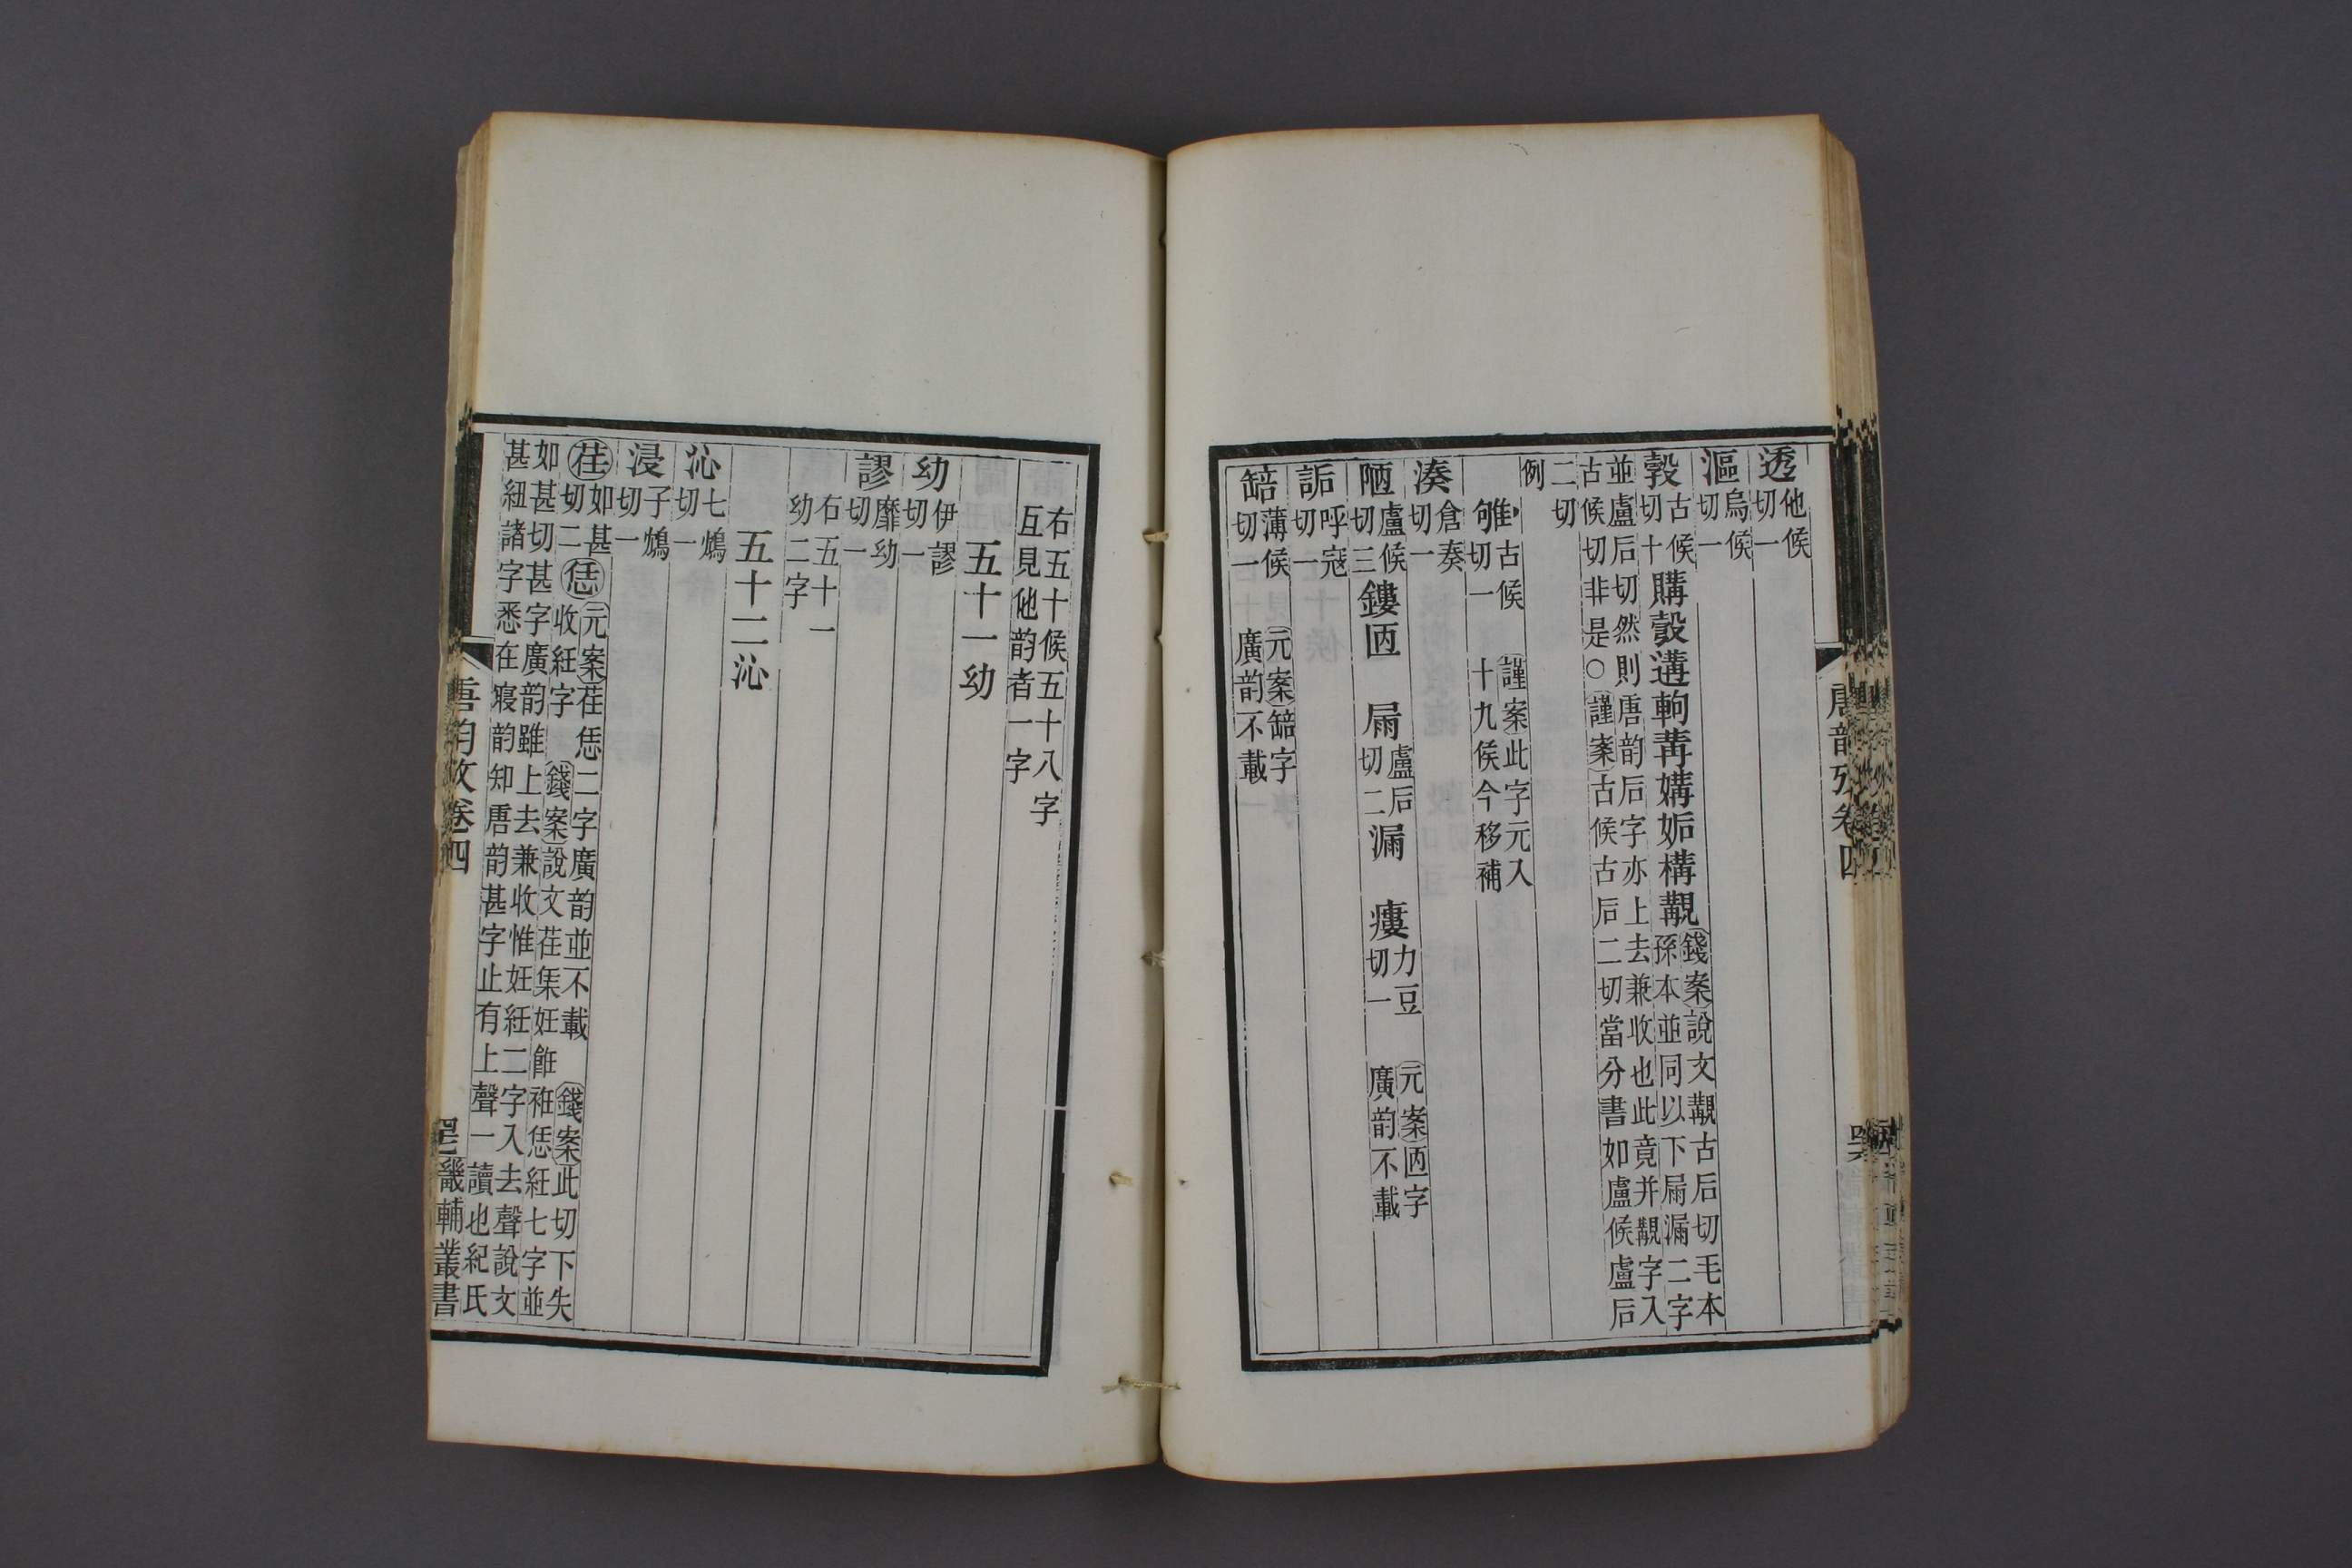 透他候切一
漚烏候切一
㝅古候切十購彀遘軥冓媾姤構覯錢案說文覯古后切毛本孫本並同以下屚漏二字
並盧后切然則唐韵后字亦上去兼收也此竟并覯字入古候切非是○謹案古候古后二切當分書如盧候盧后
二切例
雊古候切一謹案此字元入十九侯今移補
湊倉奏切一
陋盧候切三鏤㔷 屚盧后切二漏 瘻力豆切一 元案㔷字廣韵不載
詬呼寇切一
䏽薄候切一 元案䏽字廣韵不載
唐韵攷卷四
右五十候五十八字互見他韵者一字
五十一幼
幼伊謬切一
謬靡幼切一
右五十一幼二字
五十二沁
沁七鴆切一
浸子鴆切一
荏如甚切二恁元案荏恁二字廣韵並不載 錢案此切下失收紝字 錢案說文荏集妊飪衽恁紝七字並
如甚切甚字廣韵雖上去兼收惟妊紝二字入去聲說文甚紐諸字悉在寑韵知唐韵甚字止有上聲一讀也紀氏
唐韵攷卷四
畿輔叢書